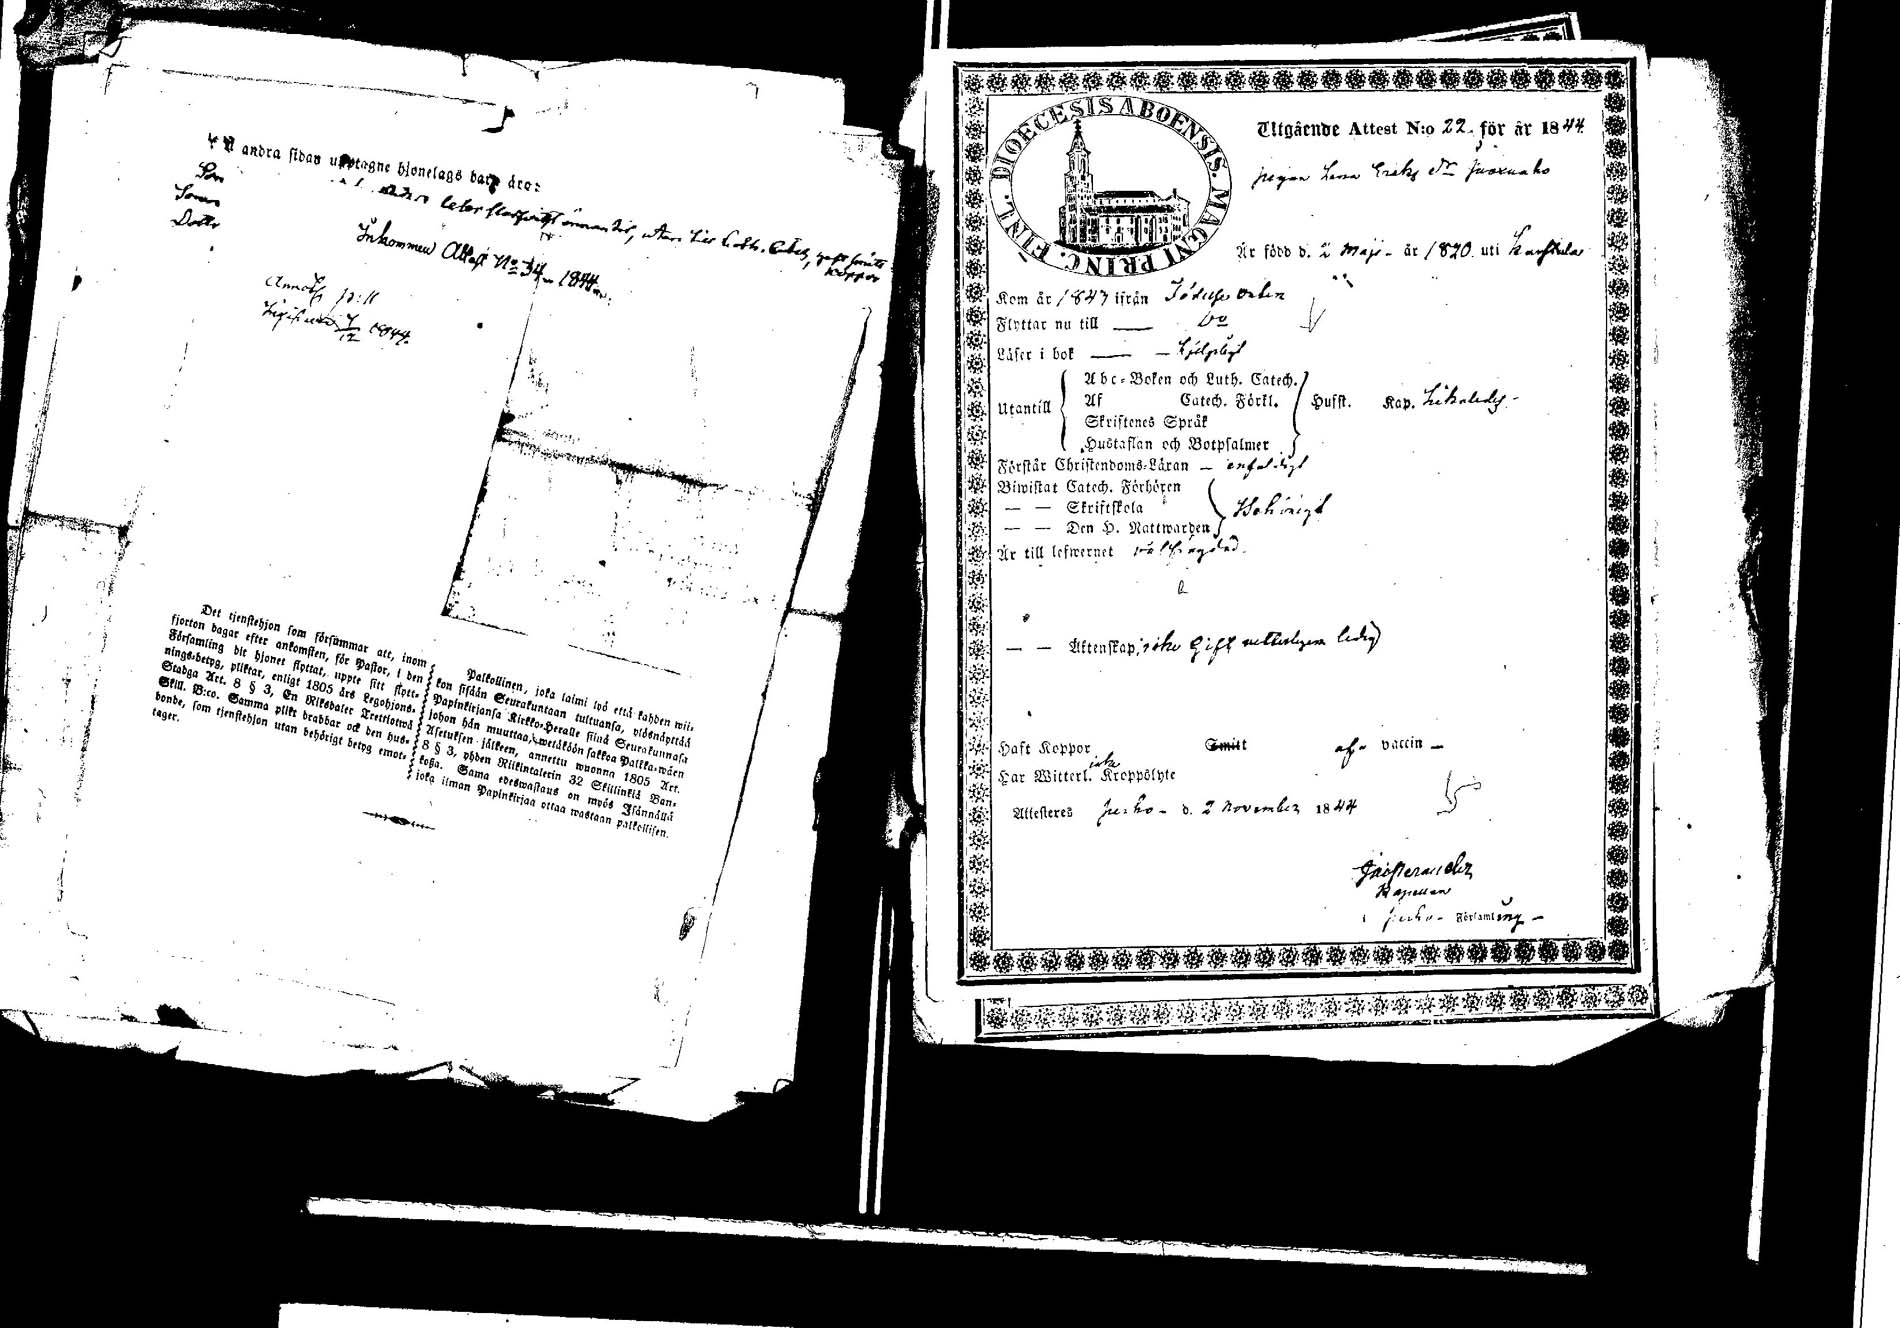 å andra sidan upptagne hjonelags barn äro:
Son
Sonen
Dotter
Inkommen Attest No 34 1844
Koppor
1844.
Det tjenstehjon som försummar att, inom
fjorton dagar efter ankomsten, för Pastor, i den
Församling dit hjonet flyttat, uppte sitt flytt-
nings-betyg, pliktar, enligt 1805 års Legohjons-
Stadga Art. 8 § 3, En Riksdaler Trettiotwå
Skill. B:co. Samma plikt drabbar ock den hus-
bonde, som tjenstehjon utan behörigt betyg emot-
tager.
Palkollinen, joka laimi lyö että kahden wii-
kon sisään Seurakuntaan tultuansa, ylösnäyttää
Papinkirjansa Kirkko-Herralle siinä Seurakunnasa
johon hän muuttaa, wetäköön sakkoa Palkka-wäen
Asetuksen jälkeen, annettu wuonna 1805 Art.
8 § 3, yhden Riikintalerin 32 Skillinkiä Ban-
kosa. Sama edeswastaus on myös Isännällä
joka ilman Papinkirjaa ottaa wastaan palkollisen.
DIOECESIS ABOENSIS. MAGNI PRINC. FINL.
Utgående Attest N:o 22. för år 1844.
Pigan Lena Eriks dr
Är född d. 2 Maji - år 1820. uti Karstula
Kom år 1843 ifrån
Flyttar nu till — Do
Läser i bok — — hjelpligt
Utantill
Abc-Boken och Luth. Catech.
Af Catech. Förkl.
Skriftenes Språk
Hustaflan och Botpsalmer
Husst. Kap. likaledes -
Förstår Christendoms-Läran - enfaldigt
Biwistat Catech. Förhören
— — Skriftskola
— — Den H. Nattwarden
Behörigt
Är till lefwernet wälfrägdad.
— — Äktenskap, icke Gift witterligen ledig
Haft Koppor Smitt af - vaccin -
icke
Har Witterl. Kroppslyte
Attesteres Perho - d. 2 November 1844
Kapellan
i Perho - Församling -